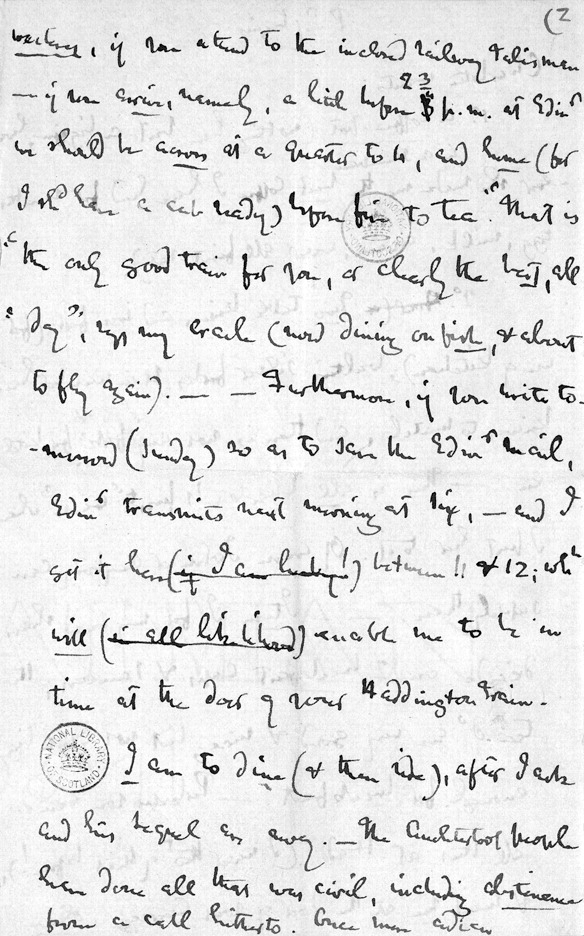 (2
, if you attend to the inclosed railway talisman
— if you arrive, namely, a little before 3 p.m. at Edinr
we should be across at a quarter to 4, and home (for
I shd have a cab ready) before five to tea. "That is
"the only good train for you, or clearly the best, all
"day"; says my oracle (now dining on fish, & about
to fly again). — — Furthermore, if you write to-
-morrow (Sunday) so as to save the Edinr mail,
Edinr transmits next morning at six, — and I
get it here (if I am lucky!) between 11 & 12; whh
will (in all likelihood) enable me to be in
time at the door of your Haddington train.
I am to dine (& then ride), after Jack
and his are away. — The people
have done all that was civil, including abstinence
from a call hitherto. Once more adieu
NATIONAL LIBRARY
OF SCOTLAND